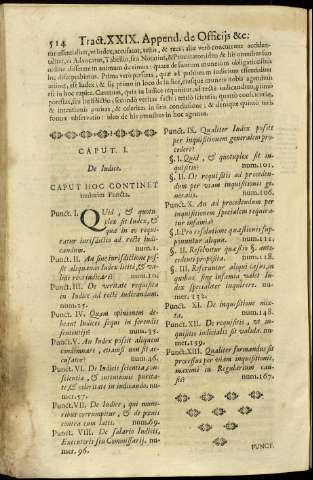 514 Tract. XXIX. Append. de Officijs &c:
tur essentialium, vt Iudex, accusator, testis, & reus; aliæ verò concurrunt acciden-
taliter, vt Aduocatus, Tabellio, seu Notarius, & Procurator: istos de his omnibus suo
ordine
CAPUT. I.
De Iudice.
CAPUT HOC CONTINET
tredecim Puncta.
Punct. I. QUid, & quotu-
plex sit Iudex, &
qua in eo requi-
ratur iurisdictio ad rectè iudi-
candum. num.1.
Punct. II. An sine iurisdictione pos-
sit aliquando Iudex licitè, & va-
lidè rem iudicare num.10.
Punct. III. De veritate requisita
in Iudice ad rectè iudicandum.
num.
Punct. IV. Quam opinionem de-
beant Iudices sequi in ferendis
sententijs num.25.
Punct. V. An Iudex possit aliquem
condemnare, etiamsi non sit ac-
cusatus num.
Punct. VI. De Iudicis scientia, con-
scientia, & intentionis purita-
te & celeritate in iudicando. nu-
mer.57.
Punct. VII. De Iudice, qui mune-
ribus corrumpitur, & de pœnis
contra eum latis. num.69.
Punct. VIII. De salario Iudicis,
Executoris seu Commissarij. nu-
mer. 96.
Punct. IX. Qualiter Iudex possit
per inquisitionem generalem pro-
cedere?
§. I. Quid, & quotuplex sit in-
quisitio? num.101.
§. II. De requisitis ad proceden-
dum per viam inquisitionis ge-
neralis. num.106.
Punct. X. An ad procedendum per
inquisitionem specialem requira-
tur infamia?
§. I. Pro resolutione quæstionis sup-
ponuntur aliqua. num.111.
§. II. Resoluitur quæstio §. ante-
cedenti proposita. num.118.
§. III. Referuntur aliqui casus, in
quibus sine infamia valet Iu-
dex specialiter inquirere. nu-
mer. 132.
Punct. XI. De inquisitione mix-
ta. num.148.
Punct. XII. De requisitis, vt in-
quisitio iudicialis sit valida. nu-
mer.159.
Punct. XIII. Qualiter formandus sit
processus per viam inquisitionis,
maximè in Regularium cau-
sis? num.167.
PUNCT.